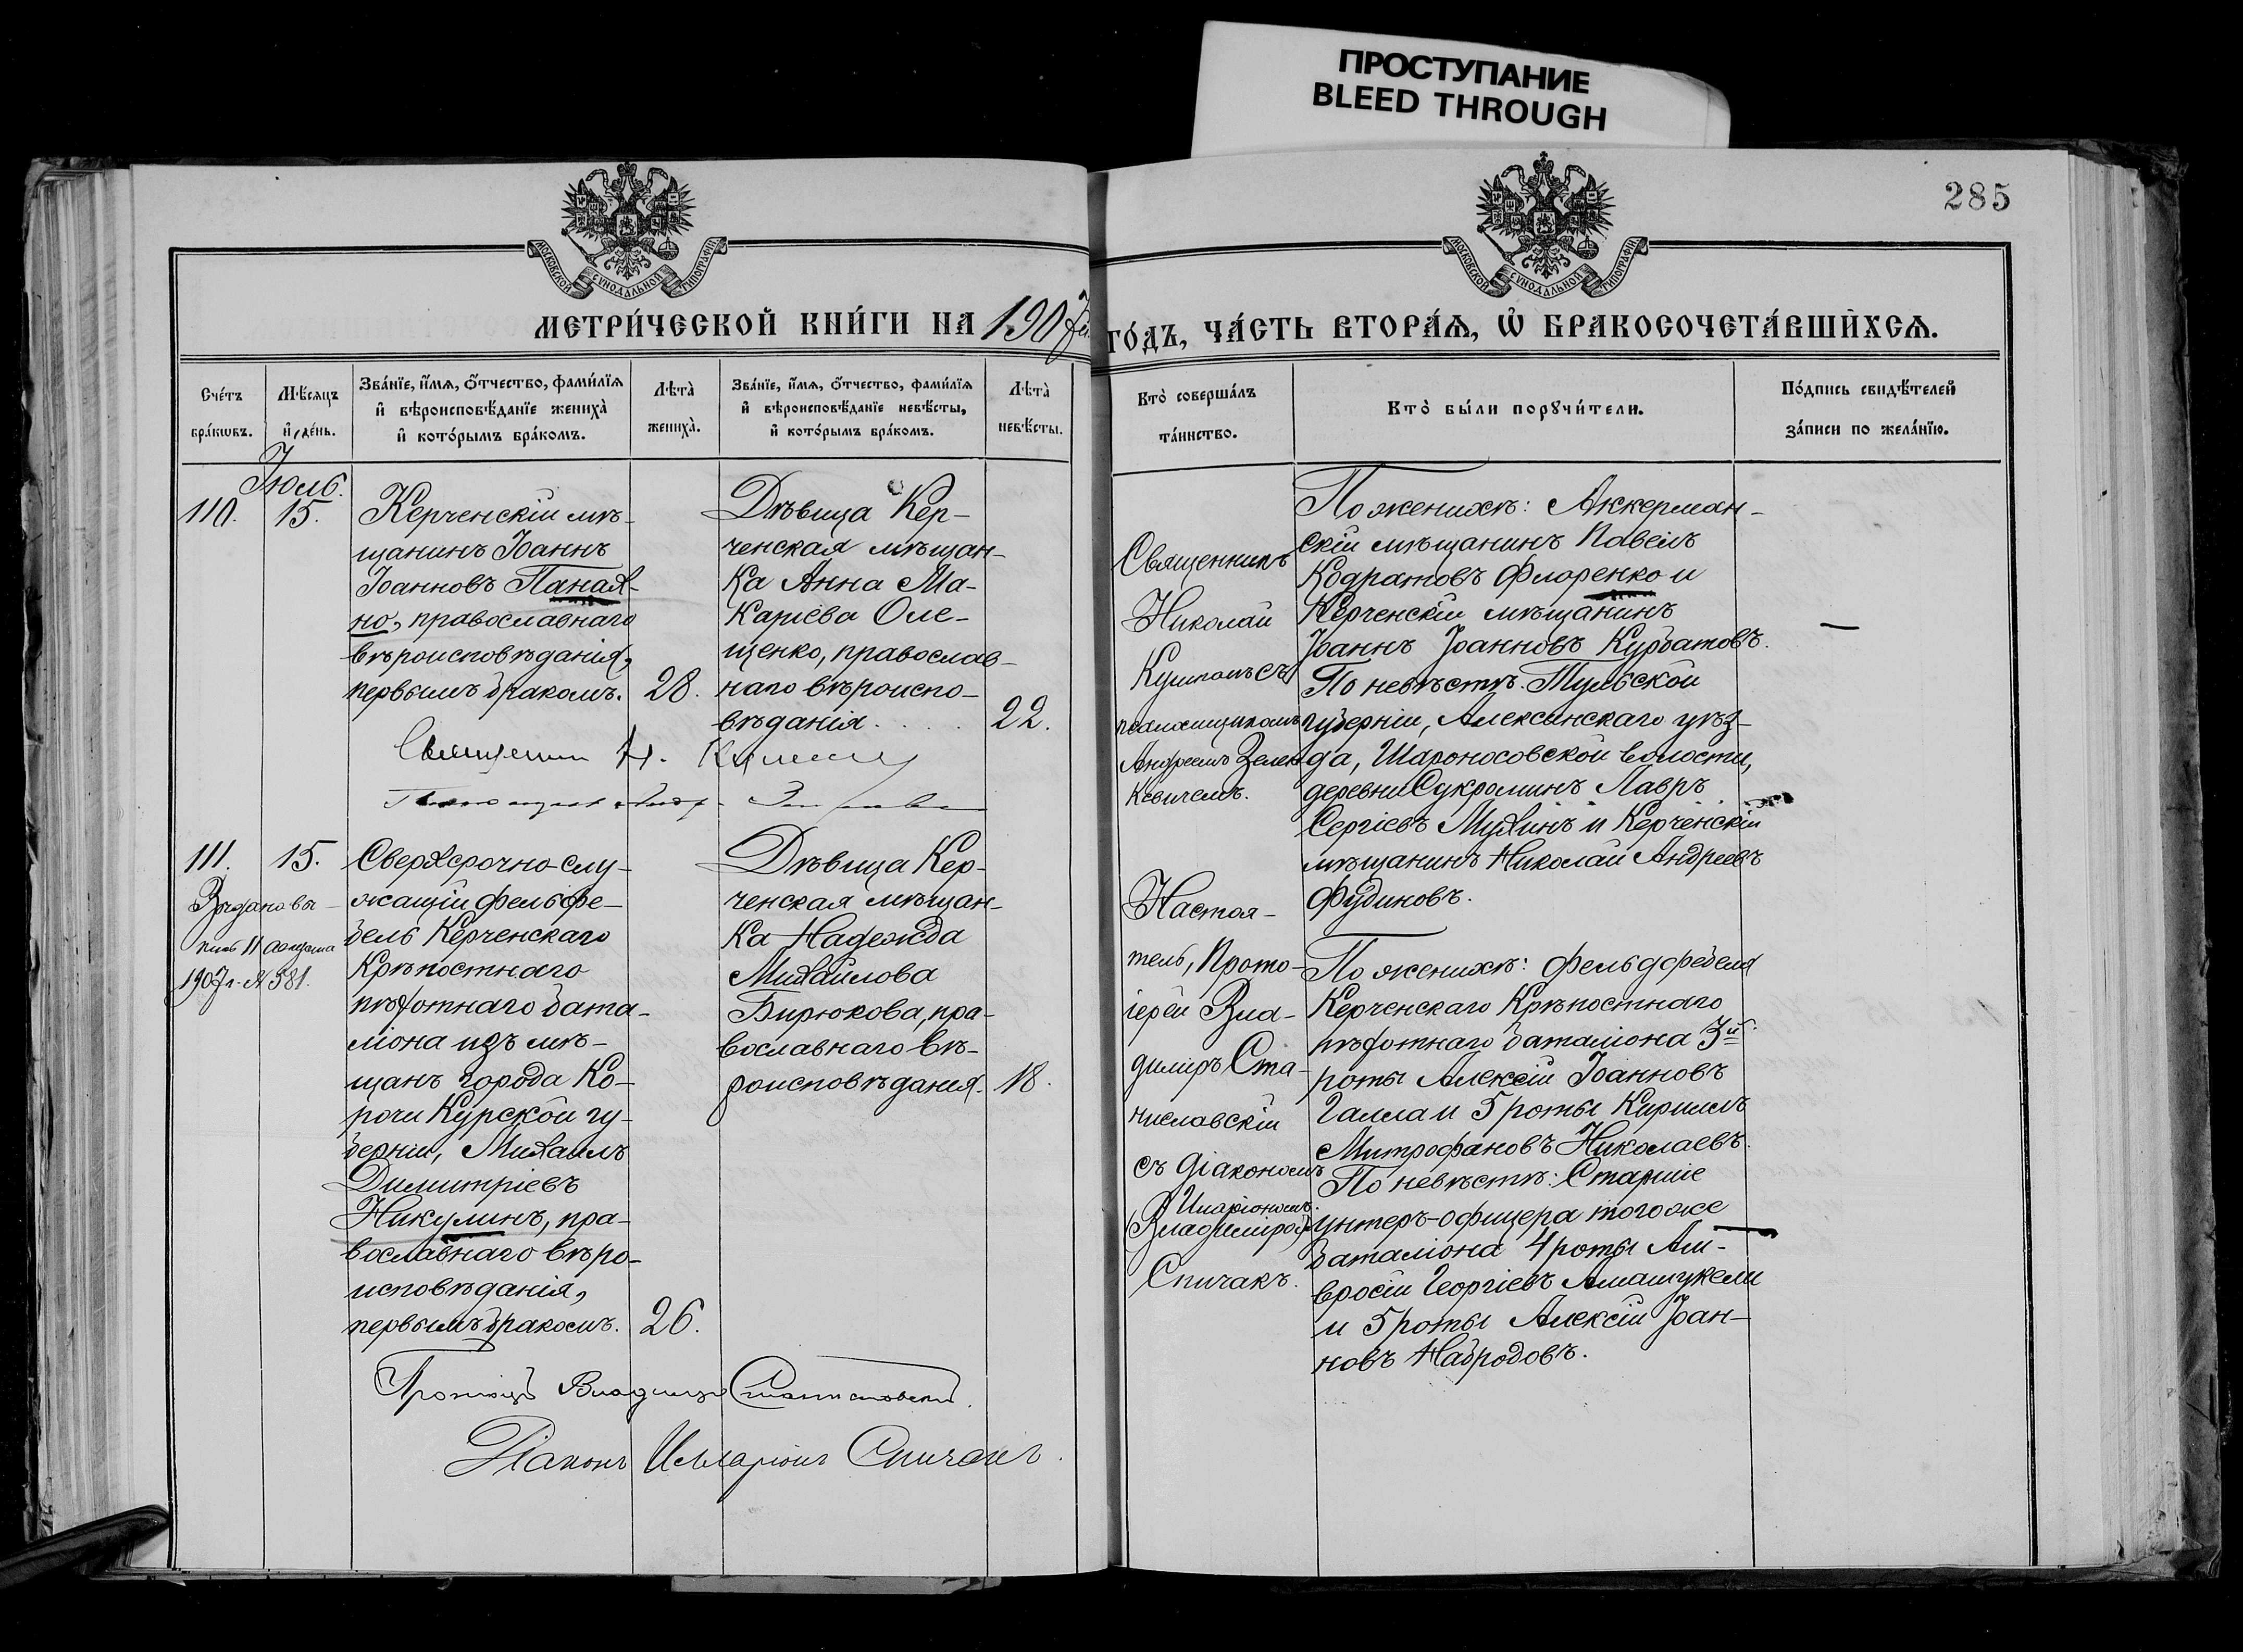 ПРОСТУПАНИЕ
BLEED THROUGH
285
МОСКОВСКОЙ СѴНОДАЛЬНОЙ ТИПОГРАФІИ
МОСКОВСКОЙ СѴНОДАЛЬНОЙ ТИПОГРАФІИ
МЕТРИ́ЧЕСКОЙ КНИ́ГИ НА 1907й
ГО́ДЪ, ЧА́СТЬ ВТОРА́Я, Ѡ҆ БРАКОСОЧЕТА́ВШИХСЯ.
Сче́тъ
бра́кѡвъ.
Мѣ́сяцъ
и҆ де́нь.
Зва́нїе, и҆́мя, ѻ҆́тчество, фами́лїя
и҆ вѣроисповѣ́данїе жениха̀
и҆ кото́рымъ бра́комъ.
Лѣта̀
жениха̀.
Зва́нїе, и҆́мя, ѻ҆́тчество, фами́лїя
и҆ вѣроисповѣ́данїе невѣ́сты,
и҆ кото́рымъ бра́комъ.
Лѣта̀
невѣ́сты.
Кто̀ соверша́лъ
та́инство.
Кто̀ бы́ли порꙋчи́тели.
По́дпись свидѣ́телей
за́писи по жела́нїю.
Іюль.
110.
15.
Керченскій мѣ-
щанинъ Іоаннъ
Іоанновъ Паная-
но, православнаго
вѣроисповѣданія,
первымъ бракомъ.
28.
Дѣвица Кер-
ченская мѣщан-
ка Анна Ма-
каріева Оле-
щенко, православ-
наго вѣроиспо-
вѣданія. . . .
22.
Священникъ
Николай
псаломщикомъ
Андреемъ Зелен
кевичемъ.
По женихѣ: Аккерман-
скій мѣщанинъ Павелъ
Кодратовъ Флоренко и
Керченскій мѣщанинъ
Іоаннъ Іоанновъ Курбатовъ.
По невѣстѣ. Тульской
губерніи, Алексинскаго уѣз-
да, Шароносовской волости,
деревни Сукроминъ Лавръ
Сергіевъ Мухинъ и Керченскій
мѣщанинъ Николай Андреевъ
Фудиновъ.
Священникъ Н.
111.
15.
Выдана вы-
пись 11 августа
1907 г. № 581.
Сверхсрочно-слу-
жащій фельдфе-
бель Керченскаго
Крѣпостнаго
пѣхотнаго бата-
ліона изъ мѣ-
щанъ города Ко-
рочи Курской гу-
берніи, Михаилъ
Димитріевъ
Никулинъ, пра-
вославнаго вѣро-
исповѣданія,
первымъ бракомъ.
26.
Дѣвица Кер-
ченская мѣщан-
ка Надежда
Михайлова
Бирюкова, пра-
вославнаго вѣ-
роисповѣданія.
18.
Настоя-
тель, Прото-
іерей Вла-
димиръ Ста-
ниславскій
съ діакономъ
Иларіономъ
Спичакъ.
По женихѣ: фельдфебеля
Керченскаго Крѣпостнаго
пѣхотнаго баталіона 3й
роты Алексій Іоанновъ
Галла и 5 роты Кириллъ
Митрофановъ Николаевъ.
По невѣстѣ: Старшіе
унтеръ-офицера того же
баталіона 4 роты Ам-
вросій Георгіевъ Амашукели
и 5 роты Алексій Іоан-
новъ Набродовъ.
Протоіерей Владимиръ Станиславскій.
Діаконъ Илларіонъ Спичакъ.